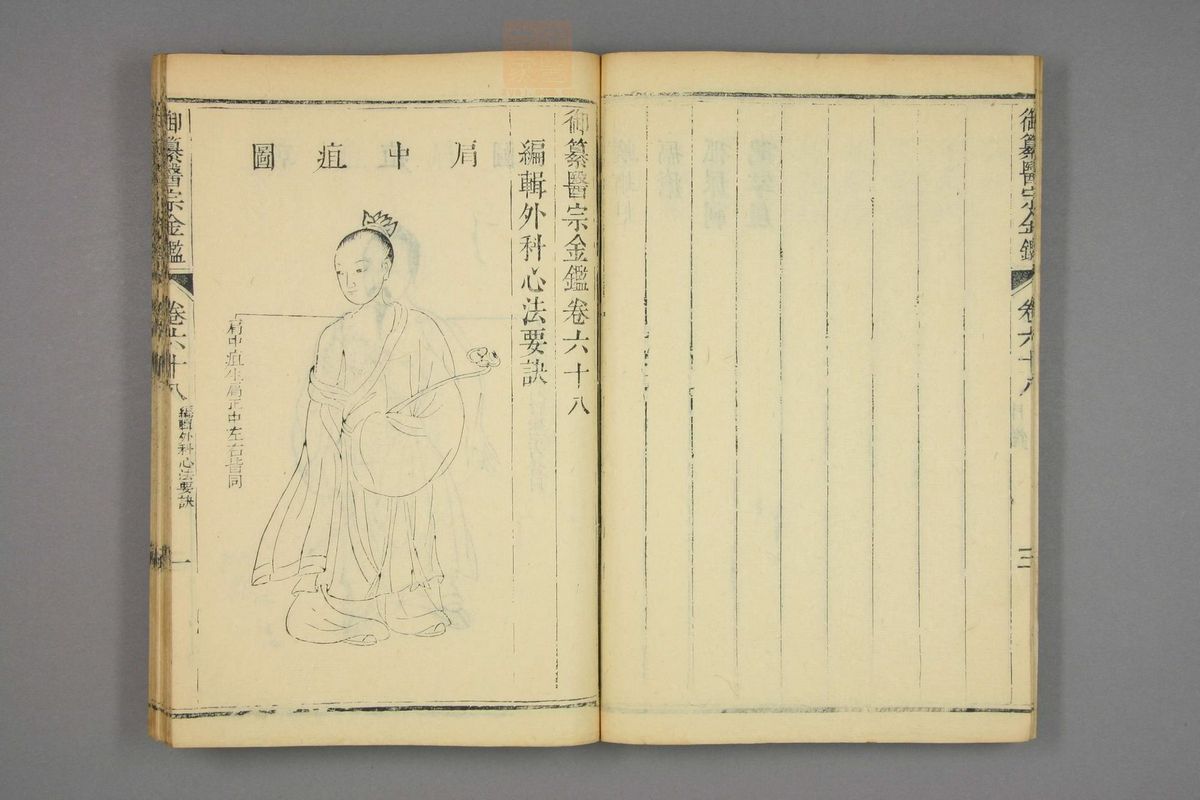 御纂醫宗金鑑
卷六十八
三
御纂醫宗金鑑卷六十八
編輯外科心法要訣
肩中疽圖
肩中疽生肩正中左右皆同
御纂醫宗金鑑
卷六十八
編輯外科心法要訣
一